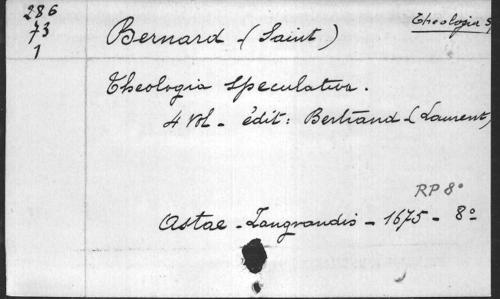 286
73
1
Bernard (Saint)
Theologia Sp
Theologia speculativa.
4 vol. - édit: Bertrand (Laurent)
RP 8°
Astae - Langrandis - 1675 - 8°